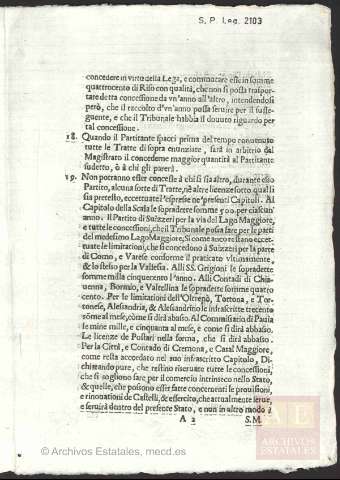 S. P. Leg. 2103
concedere in virtù della Lega, e commutare esse in somme
quattrocento di Riso con qualità, che non si possa traspor-
tare detta concessione da vn'anno all'altro, intendendosi
però, che il raccolto d'vn'anno possa seruire per il susse-
guente, e che il Tribunale habbia il douuto riguardo per
tal concessione.
18. Quando il Partitante spacci prima del tempo conuenuto
tutte le Tratte di sopra enunziate, sarà in arbitrio dal
Magistrato il concederne maggior quantità al Partitante
sudetto, ò à chi gli parerà.
19. Non potranno esser concesse à chi si sia altro, durante esso
Partito, alcuna sorte di Tratte, nè altre licenze sotto qual si
sia pretesto, eccettuate l'espresse ne' presenti Capitoli. Al
Capitolo della Scala le sopradette somme 500. per ciascun'
anno. Il Partito di Suizzeri per la via del Lago Maggiore,
e tutte le concessioni, che il Tribunale possa fare per le parti
del medesimo Lago Maggiore, Si come ancor restano eccet-
tuate le limitationi, che si concedono à Suizzeri per la parte
di Como, e Varese conforme il praticato vltimamente,
& lo stesso per la Valsesia. Alli SS. Grigioni le sopradette
somme milla cinquecento l'anno. Alli Contadi di Chia-
uenna, Bormio, e Valtellina le sopradette somme quattro
cento. Per le limitationi dell'Oltrepò, Tortona, e Tor-
tonese, Alesandria, & Alesandrino le infrascritte trecento
some al mese, como si dirà abasso. Al Commissario di Pauia
le mine mille, e cinquanta al mese, e come si dirà abbasso.
Le licenze de Postari nella forma, che si dirà abbasso.
Per la Città, e Contado di Cremona, e Casal Maggiore,
come resta accordato nel suo infrascritto Capitolo, Di-
chiarando pure, che restino riseruate tutte le concessioni,
che si sogliono fare per il comercio intrinseco nello Stato,
& quelle, che possono esser fatte concernenti le prouisioni,
e rinouationi de Castelli, & essercito, che attualmente serue,
e seruirà dentro del presente Stato, e non in altro modo à
A 2 S. M.
AL
ARCHIVOS
ESTATALES
© Archivos Estatales, mecd.es